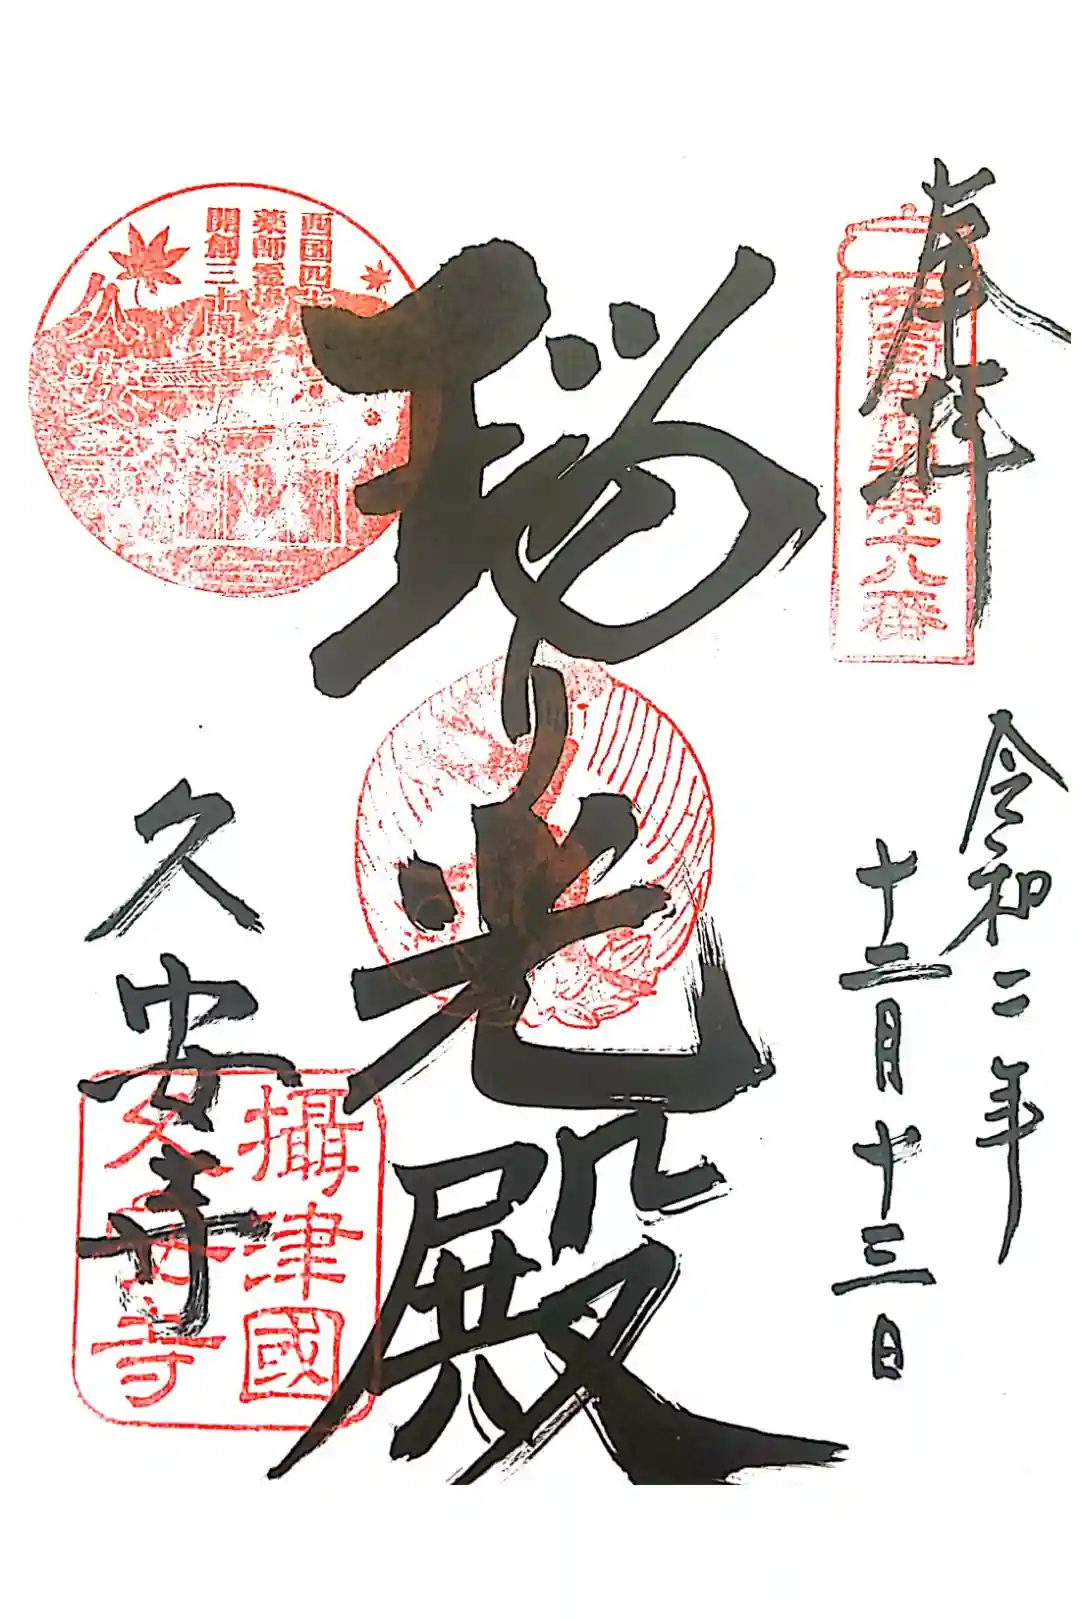 奉拝
令和二年
十二月十三日
第十八番
瑠り光殿
西国四十
薬師霊場
開創三十周年
久安寺
久安寺
攝津國
久安寺